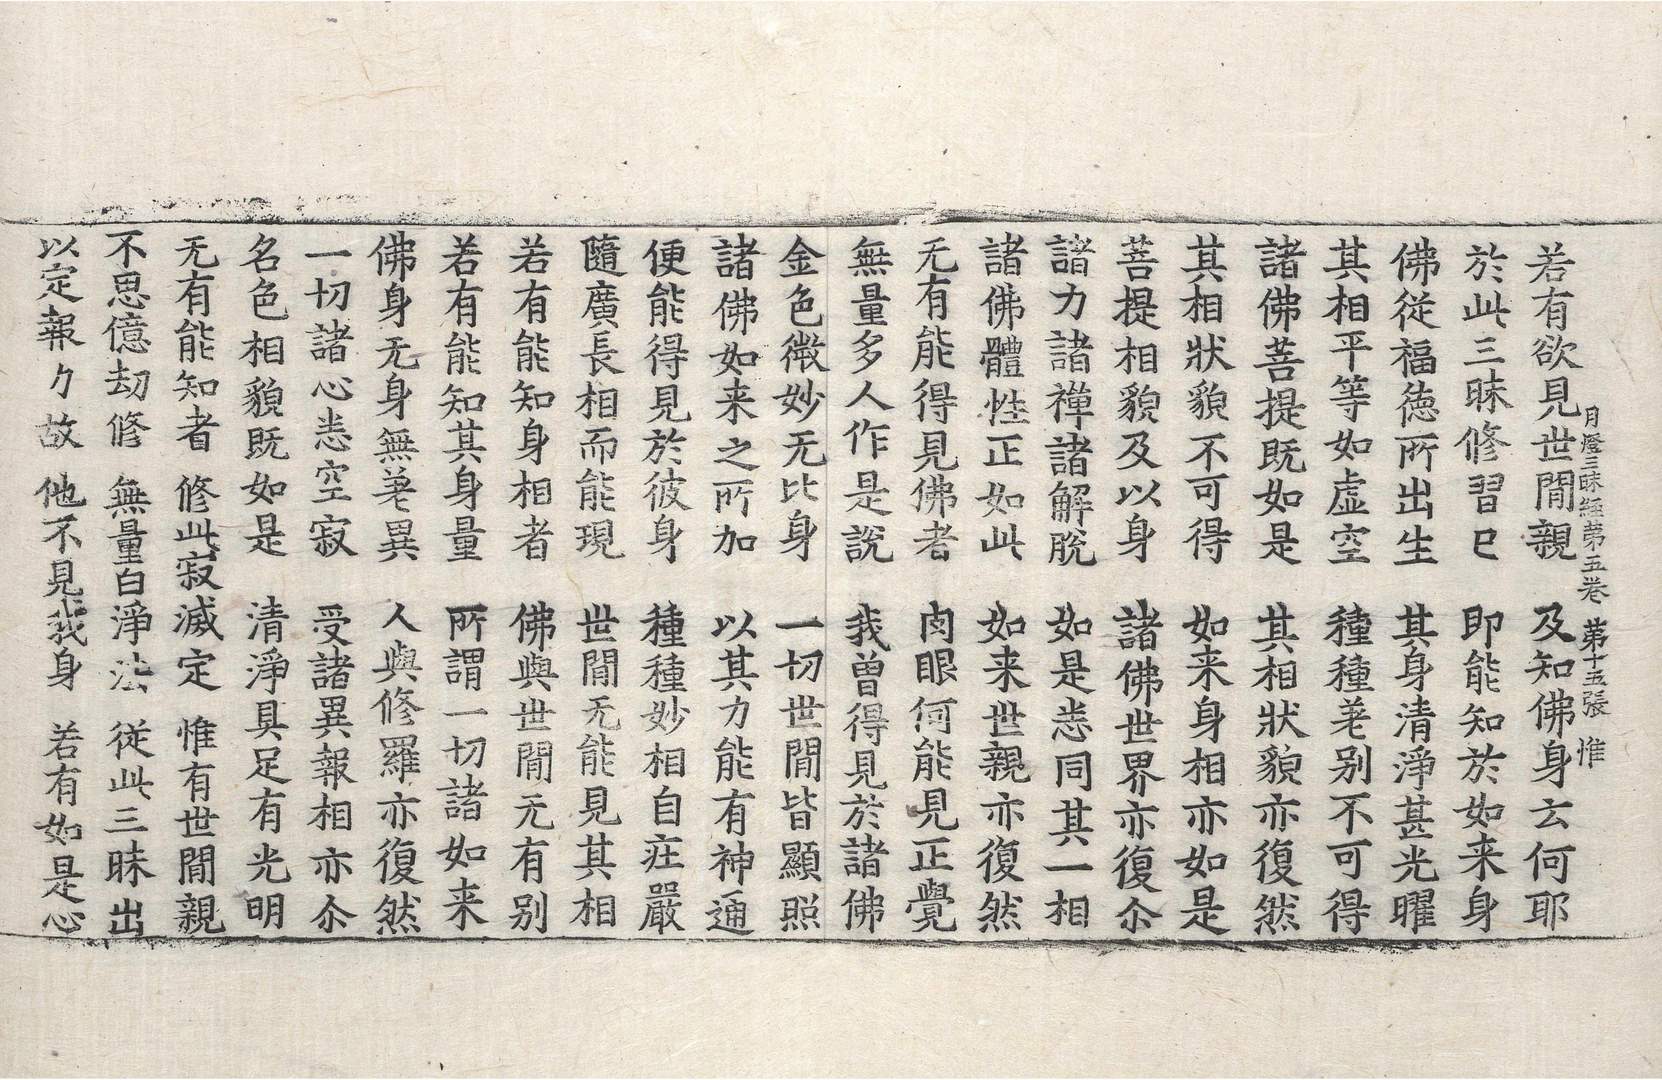 月燈三昧經第五卷　第十五張　惟
若有欲見世閒親　及知佛身云何耶
於此三昧修習已　即能知於如来身
佛從福德所出生　其身清淨甚光曜
其相平等如虛空　種種差别不可得
諸佛菩提既如是　其相狀貌亦復然
其相狀貌不可得　如来身相亦如是
菩提相貌及以身　諸佛世界亦復尒
諸力諸禪諸解脫　如是悉同其一相
諸佛體性正如此　如来世親亦復然
无有能得見佛者　肉眼何能見正覺
無量多人作是說　我曾得見於諸佛
金色微妙无比身　一切世閒皆顯照
諸佛如来之所加　以其力能有神通
便能得見於彼身　種種妙相自莊嚴
隨廣長相而能現　世閒无能見其相
若有能知身相者　佛與世閒无有别
若有能知其身量　所謂一切諸如来
佛身无身無差異　人與修羅亦復然
一切諸心悉空寂　受諸異報相亦尒
名色相貌既如是　清淨具足有光明
无有能知者　修此寂滅定　惟有世閒親
不思億劫修　無量白淨法　從此三昧出
以定報力故　他不見我身　若有如是心